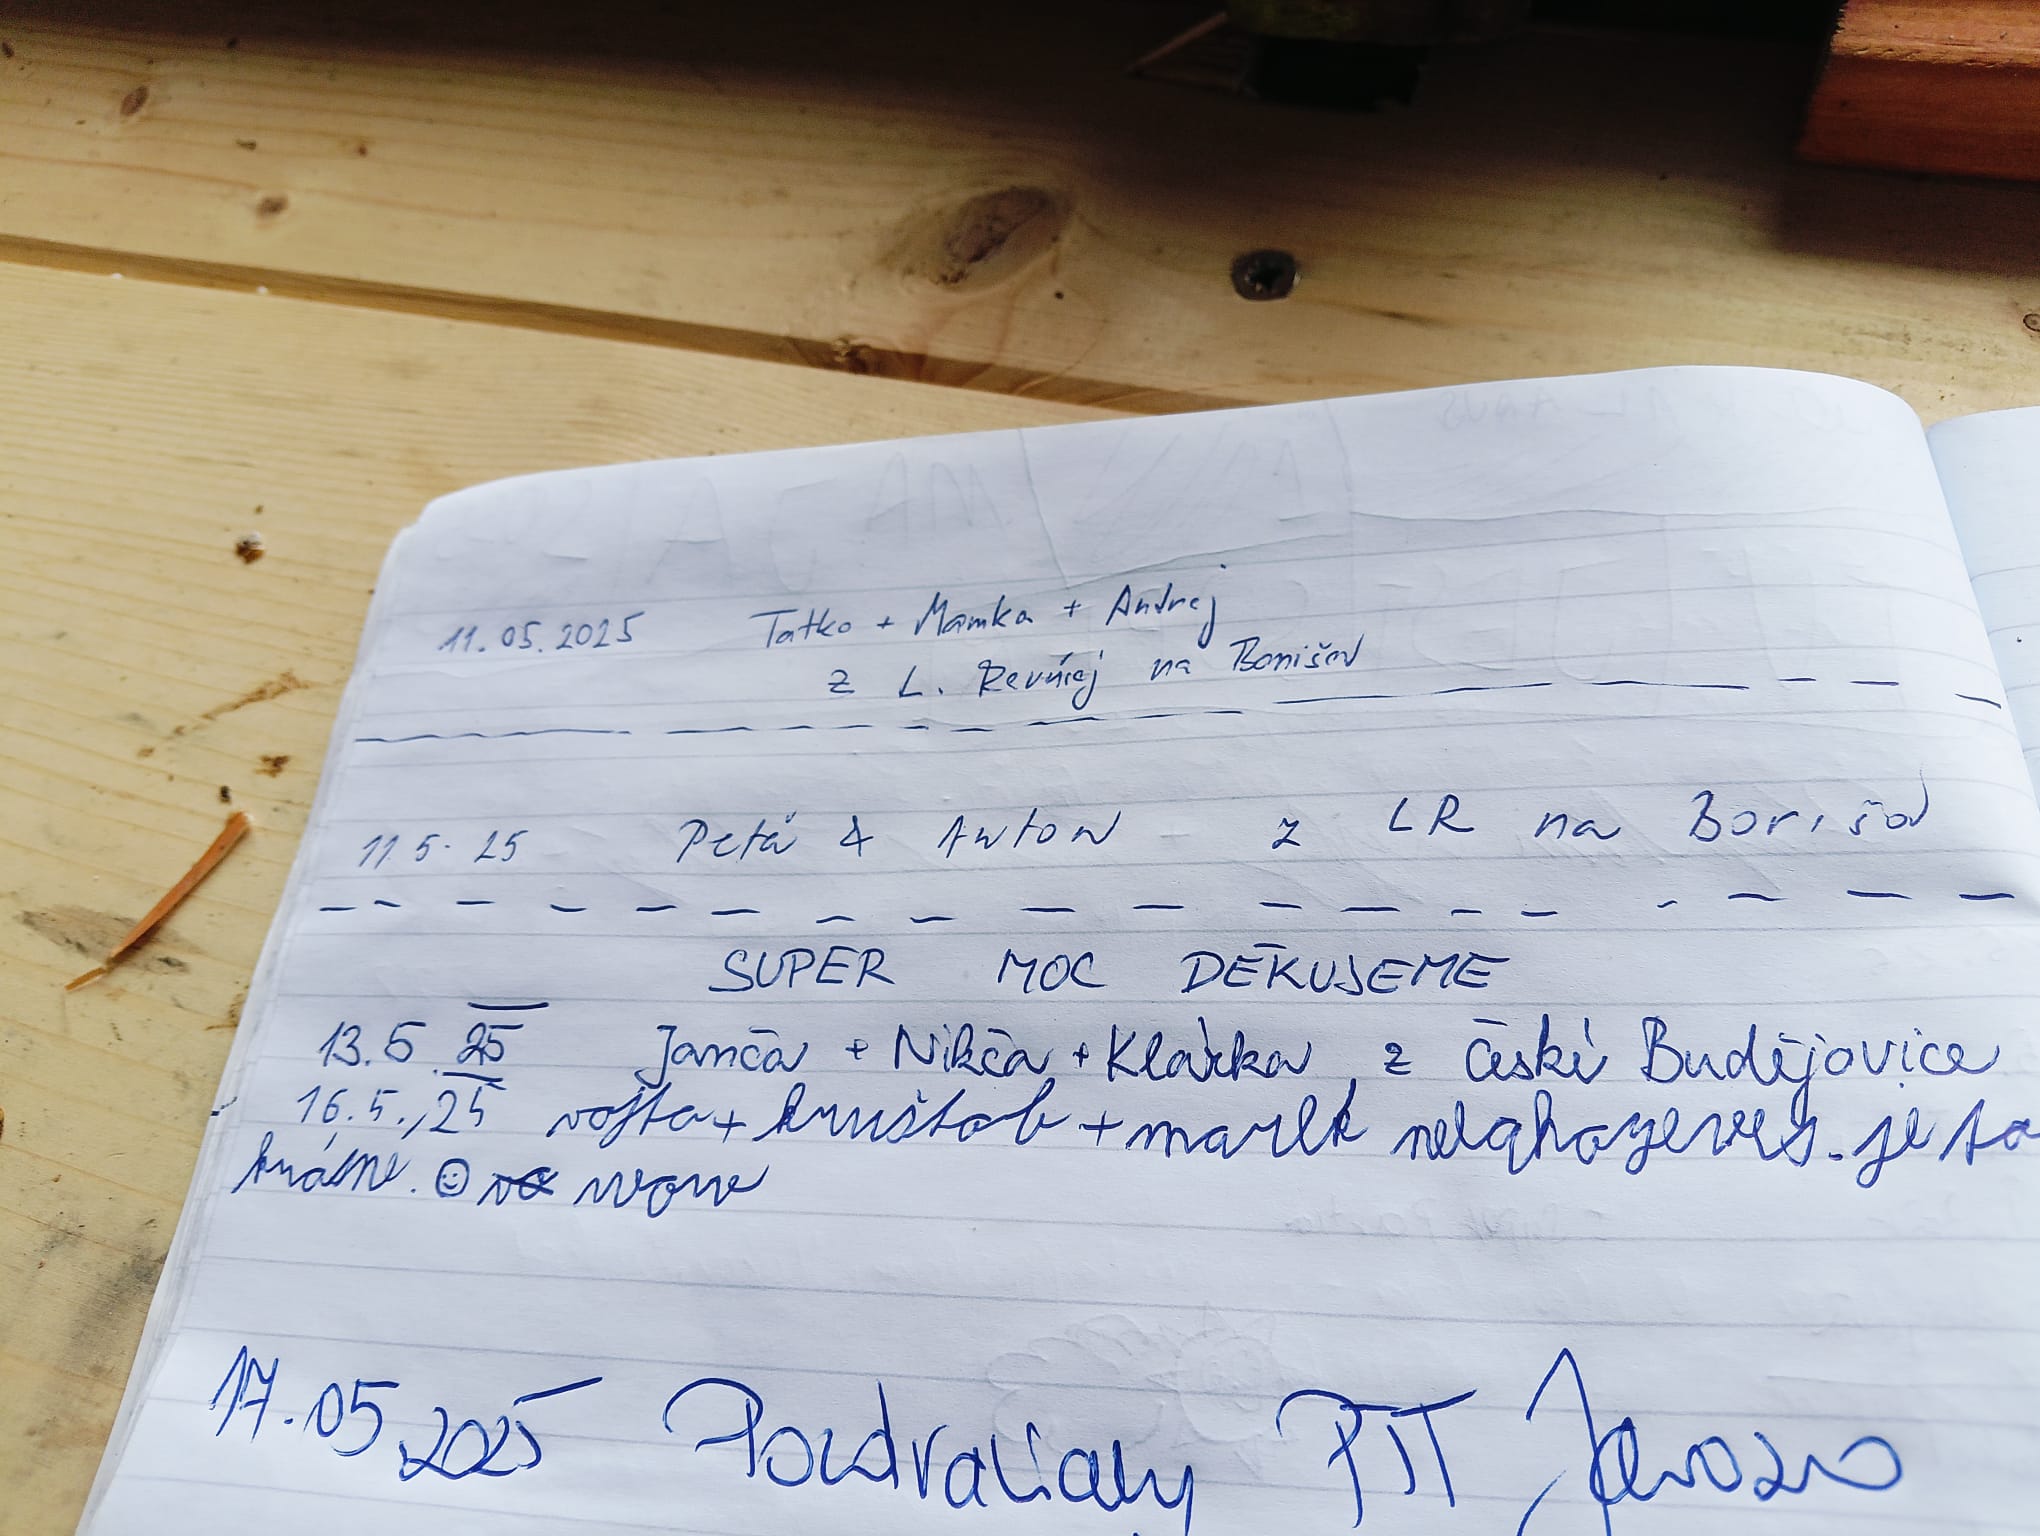 11.05.2025 Tatko + Mamka + Andrej
z L. Revúcej na Borišov
11.5.25 Peťa & Anton - z LR na Borišov
SUPER MOC DĚKUJEME
13.5.25 Janča + Nikča + Klárka z České Budějovice
16.5.,25 vojta + kruštob + marek nelahozeves. je to
krásne. ☺
17.05.2025 Pozdravialy PTT